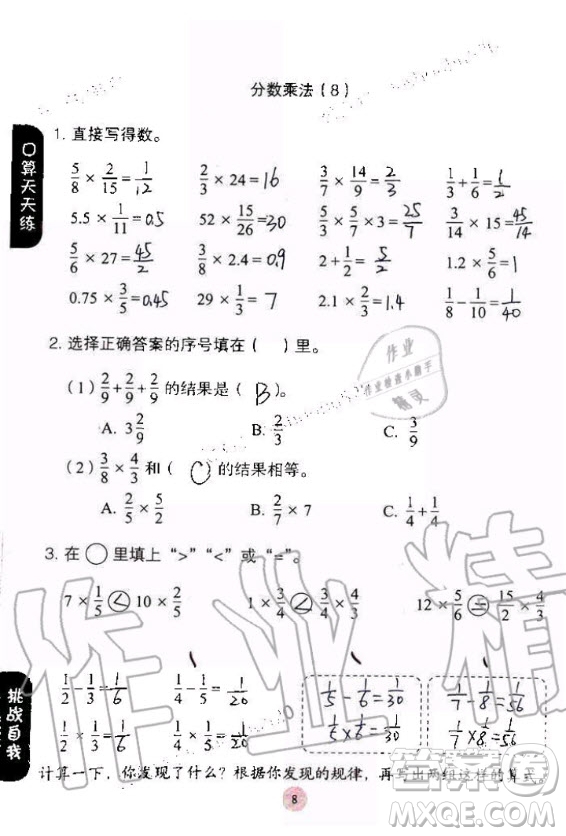 分数乘法（8）
口算天天练
1. 直接写得数。
5/8 × 2/15 = 1/12　2/3 × 24 = 16　3/7 × 14/9 = 2/3　1/3 + 1/6 = 1/2
5.5 × 1/11 = 0.5　52 × 15/26 = 30　5/3 × 5/7 × 3 = 25/7　3/14 × 15 = 45/14
5/6 × 27 = 45/2　3/8 × 2.4 = 0.9　2 + 1/2 = 5/2　1.2 × 5/6 = 1
0.75 × 3/5 = 0.45　29 × 1/3 =　2.1 × 2/3 = 1.4　1/8 − 1/10 = 1/40
2. 选择正确答案的序号填在（　）里。
（1）2/9 + 2/9 + 2/9 的结果是（ B ）。
A. 3 2/9　B. 2/3　C. 3/9
（2）3/8 × 4/3 和（ C ）的结果相等。
A. 2/5 × 5/2　B. 2/7 × 7　C. 1/4 + 1/4
3. 在○里填上“>”“<”或“=”。
7 × 1/5 < 10 × 2/5　1 × 3/4 < 3/4 × 3/4　12 × 5/6 = 15/2 × 4/3
挑战自我
1/2 − 1/3 = 1/6　1/4 − 1/5 = 1/20　1/5 − 1/6 = 1/30　1/7 − 1/8 = 1/56
1/2 × 1/3 = 1/6　1/4 × 1/5 = 1/20　1/5 × 1/6 = 1/30　1/7 × 1/8 = 1/56
计算一下，你发现了什么？根据你发现的规律，再写出两组这样的算式。
8
作业
作业检查小助手
精灵
作业精
答案圈
MXQE.COM